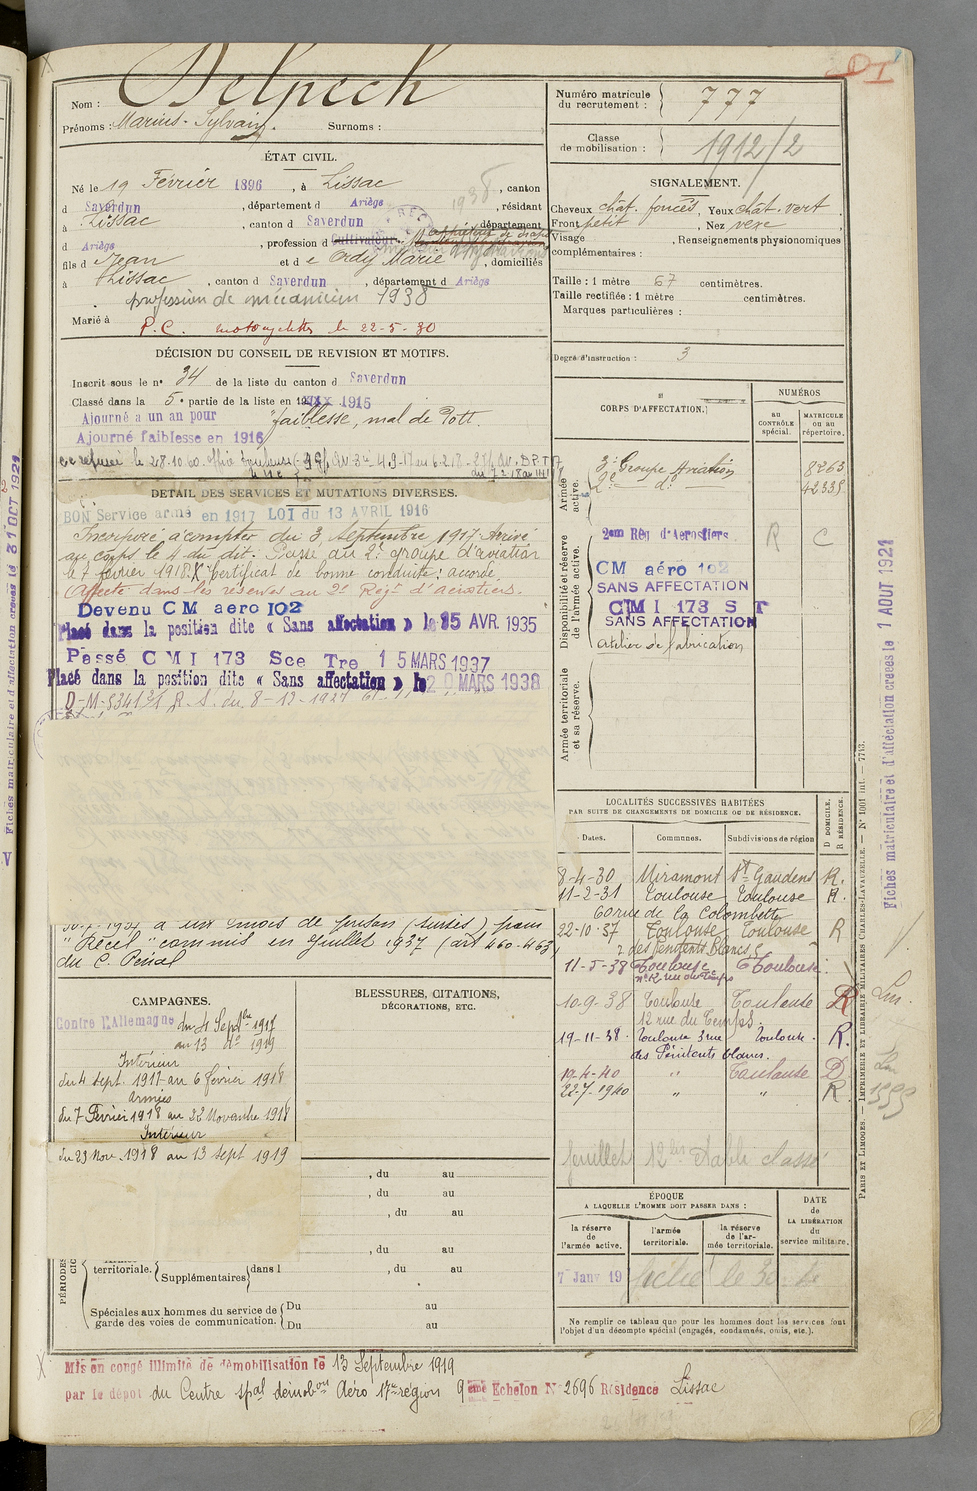 Nom : Delpech
Prénoms : Marius-Sylvain. Surnoms :
ÉTAT CIVIL.
Né le 19 Février 1896, à Lissac, canton
d Saverdun, département d Ariège, résidant
à Lissac, canton d Saverdun, département
d Ariège, profession de Cultivateur
fils d Jean et d e Ordy Marie, domiciliés
à Lissac, canton d Saverdun, département d Ariège
profession de mécanicien 1938
Marié à
P.C. motocyclettes le 22-5-30
DÉCISION DU CONSEIL DE REVISION ET MOTIFS.
Inscrit sous le n° 34 de la liste du canton d Saverdun
Classé dans la 5e partie de la liste en 1915
Ajourné a un an pour faiblesse, mal de Pott.
Ajourné faiblesse en 1916
DÉTAIL DES SERVICES ET MUTATIONS DIVERSES.
BON Service armé en 1917 LOI du 13 AVRIL 1916
Incorporé à compter du 3 Septembre 1917. Arrivé
au corps le 4 du dit. Passé au 2e groupe d'aviation
le 7 février 1918. X Certificat de bonne conduite : accordé
Affecté dans les réserves au 2e Régt d'aérostiers.
Devenu CM aero 102
Placé dans la position dite « Sans affectation » le 15 AVR. 1935
Passé C M I 173 Sce Tre 15 MARS 1937
Placé dans la position dite « Sans affectation » le 20 MARS 1938
a six mois de prison (sursis) pour
"Recel" commis en Juillet 1937 (art 460-463)
du C. Pénal
CAMPAGNES.
Contre l'Allemagne du 4 Septbre 1917
au 13 do 1919
Intérieur
du 4 sept. 1917 au 6 février 1918
Armées
du 7 Février 1918 au 22 Novembre 1918
Intérieur
du 23 Nov. 1918 au 13 sept 1919
BLESSURES, CITATIONS,
DÉCORATIONS, ETC.
, du au
, du au
, du au
, du au
PÉRIODES
territoriale. Supplémentaires dans l , du au
Spéciales aux hommes du service de
garde des voies de communication.
Du au
Du au
Mis en congé illimité de démobilisation le 13 Septembre 1919
par le dépot du Centre spal démobon Aéro 17e région 9 eme Echelon N° 2696 Résidence Lissac
Numéro matricule
du recrutement : 777
Classe
de mobilisation : 1912/2
SIGNALEMENT.
Cheveux chât. foncés, Yeux chât. vert
Front petit, Nez vexe
Visage , Renseignements physionomiques
complémentaires :
Taille : 1 mètre 67 centimètres.
Taille rectifiée : 1 mètre centimètres.
Marques particulières :
Degré d'instruction : 3
CORPS D'AFFECTATION.
NUMÉROS
au
CONTRÔLE
spécial.
MATRICULE
ou au
répertoire.
Armée
active.
3e Groupe Aviation 8263
2e do 42335
Disponibilité et réserve
de l'armée active.
2eme Rég d'Aerostiers R C
CM aéro 102
SANS AFFECTATION
CMI 173 S T
SANS AFFECTATION
atelier de fabrication
Armée territoriale
et sa réserve.
LOCALITÉS SUCCESSIVES HABITÉES
PAR SUITE DE CHANGEMENTS DE DOMICILE OU DE RÉSIDENCE.
D DOMICILE.
R RÉSIDENCE.
Dates. Communes. Subdivisions de région
8-4-30 Miramont St Gaudens R.
11-2-31 Toulouse Toulouse R.
60 rue de la Colombette
22-10-37 Toulouse Toulouse R
des Pénitents Blancs
11-5-38 Toulouse Toulouse
10-9-38 Toulouse Toulouse R
12 rue du Temps.
19-11-38 Toulouse 3 rue Toulouse R.
des Pénitents blancs.
19-4-40 " Toulouse D
22-7-1940 " " R
feuillet 12 bis établi classé
ÉPOQUE
A LAQUELLE L'HOMME DOIT PASSER DANS :
la réserve
de
l'armée active.
l'armée
territoriale.
la réserve
de l'ar-
mée territoriale.
DATE
de
LA LIBÉRATION
du
service militaire.
7 Janv 19
Ne remplir ce tableau que pour les hommes dont les services font
l'objet d'un décompte spécial (engagés, condamnés, omis, etc.).
Fiches matriculaire et d'affectation créées le 1 AOUT 1921
PARIS ET LIMOGES. — IMPRIMERIE ET LIBRAIRIE MILITAIRES CHARLES-LAVAUZELLE. — N° 1001 int. — 7713.
Fiches matriculaire et d'affectation créées le 31 OCT 1921